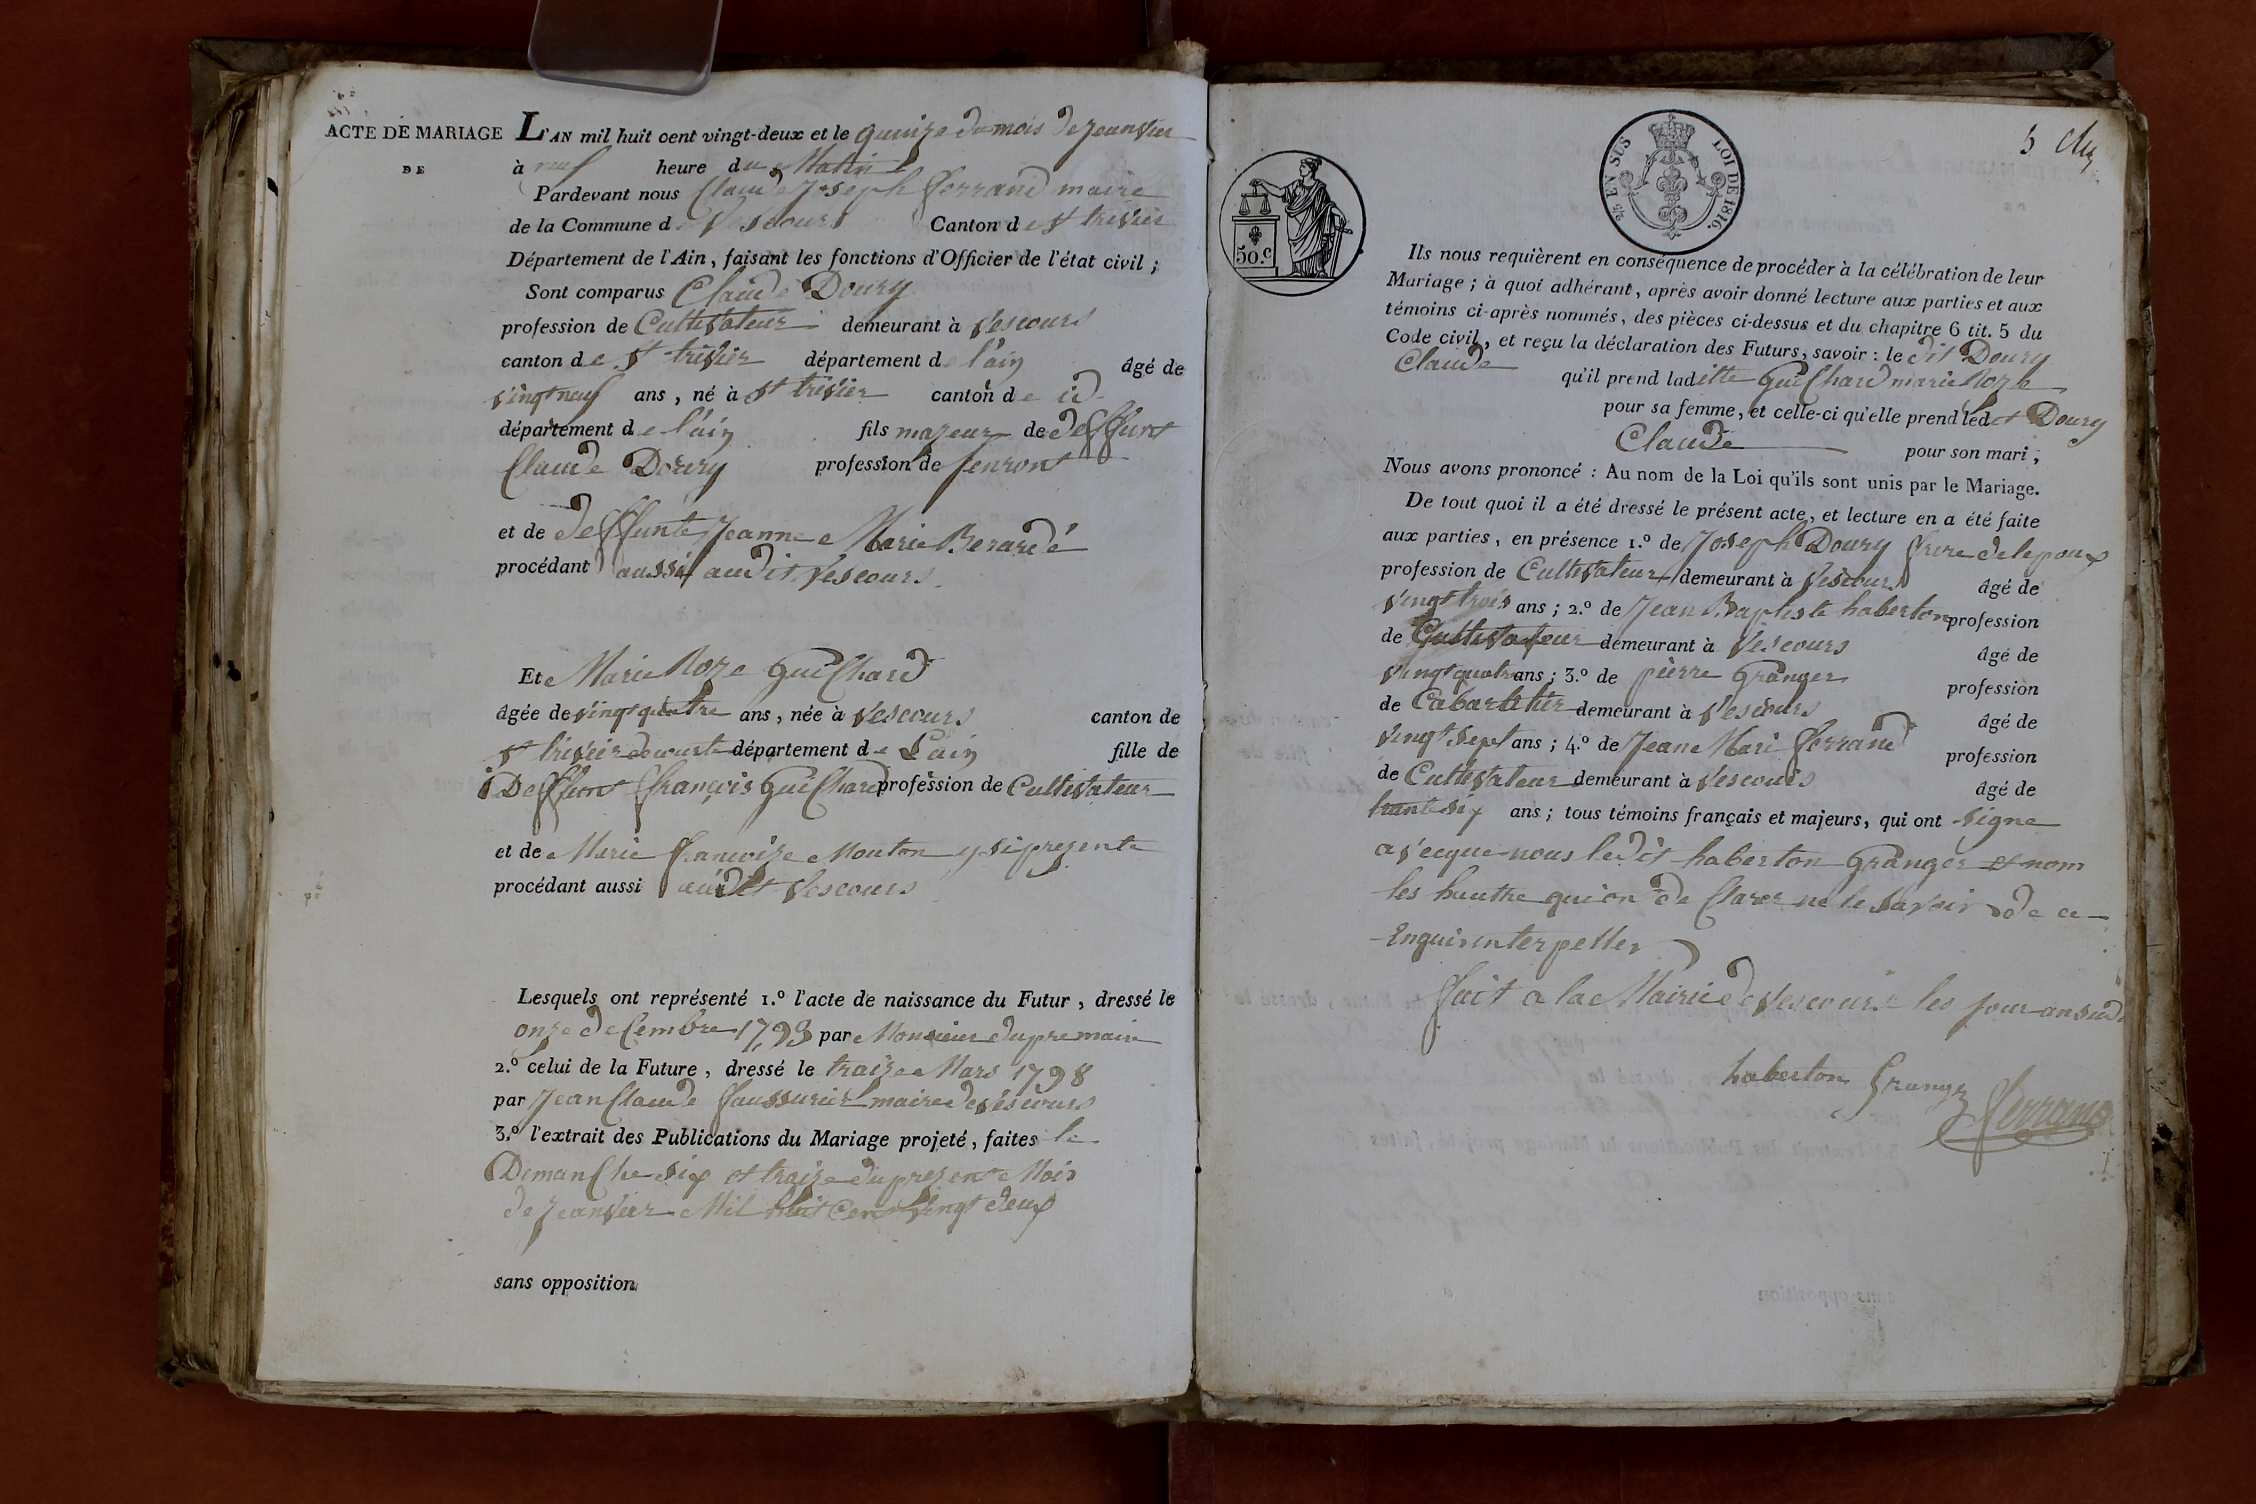 ACTE DE MARIAGE
DE
L'AN mil huit cent vingt-deux et le quinze du mois de Jeanvier
à neuf heure du Matin
Pardevant nous Claude Joseph ferrand maire
de la Commune de Vescours Canton de St trivier
Département de l'Ain, faisant les fonctions d'Officier de l'état civil;
Sont comparus Claude Doury
profession de Cultivateur demeurant à Vescours
canton de St trivier département de l'ain âgé de
vingt neuf ans, né à St trivier canton de id
département de l'ain fils majeur de deffunt
Claude Doury profession de
et de deffunte Jeanne Marie Berarde
procédant aussi audit Vescours
Et Marie Roze Guichard
âgée de vingt quatre ans, née à Vescours canton de
St trivier de courte département de L'ain fille de
Deffunt françois Guichard profession de Cultivateur
et de Marie francoize Mouton y si prezente
procédant aussi audit Vescours
Lesquels ont représenté 1.º l'acte de naissance du Futur, dressé le
onze decembre 1793 par Monsieur
2.º celui de la Future, dressé le traize Mars 1798
par Jean Claude faussurier maire de Vescours
3.º l'extrait des Publications du Mariage projeté, faites le
Dimanche six et traize du prezent Mois
de Jeanvier Mil huit Cent Vingt deux
sans opposition
5
2/10 EN SUS LOI DE 1816.
50.c
Ils nous requièrent en conséquence de procéder à la célébration de leur
Mariage; à quoi adhérant, après avoir donné lecture aux parties et aux
témoins ci-après nommés, des pièces ci-dessus et du chapitre 6 tit. 5 du
Code civil, et reçu la déclaration des Futurs, savoir: le dit Doury
Claude qu'il prend laditte Guichard marie Roze
pour sa femme, et celle-ci qu'elle prend ledit Doury
Claude pour son mari;
Nous avons prononcé: Au nom de la Loi qu'ils sont unis par le Mariage.
De tout quoi il a été dressé le présent acte, et lecture en a été faite
aux parties, en présence 1.º de Joseph Doury frere de lepoux
profession de Cultivateur demeurant à Vescours âgé de
vingt trois ans; 2.º de Jean Baptiste haberton profession
de Cultivateur demeurant à Vescours âgé de
vingt quatre ans; 3.º de pierre Granger profession
de Cabartitier demeurant à Vescours âgé de
vingt sept ans; 4.º de Jean Mari ferrand profession
de Cultivateur demeurant à Vescours âgé de
trante six ans; tous témoins français et majeurs, qui ont signe
avecque nous ledit haberton Granger et nom
les hautre qui on de Clarer ne le savoir de ce
Enquis interpeller
fait a la Mairie de Vescours les jour an sud
haberton Granger
ferrand